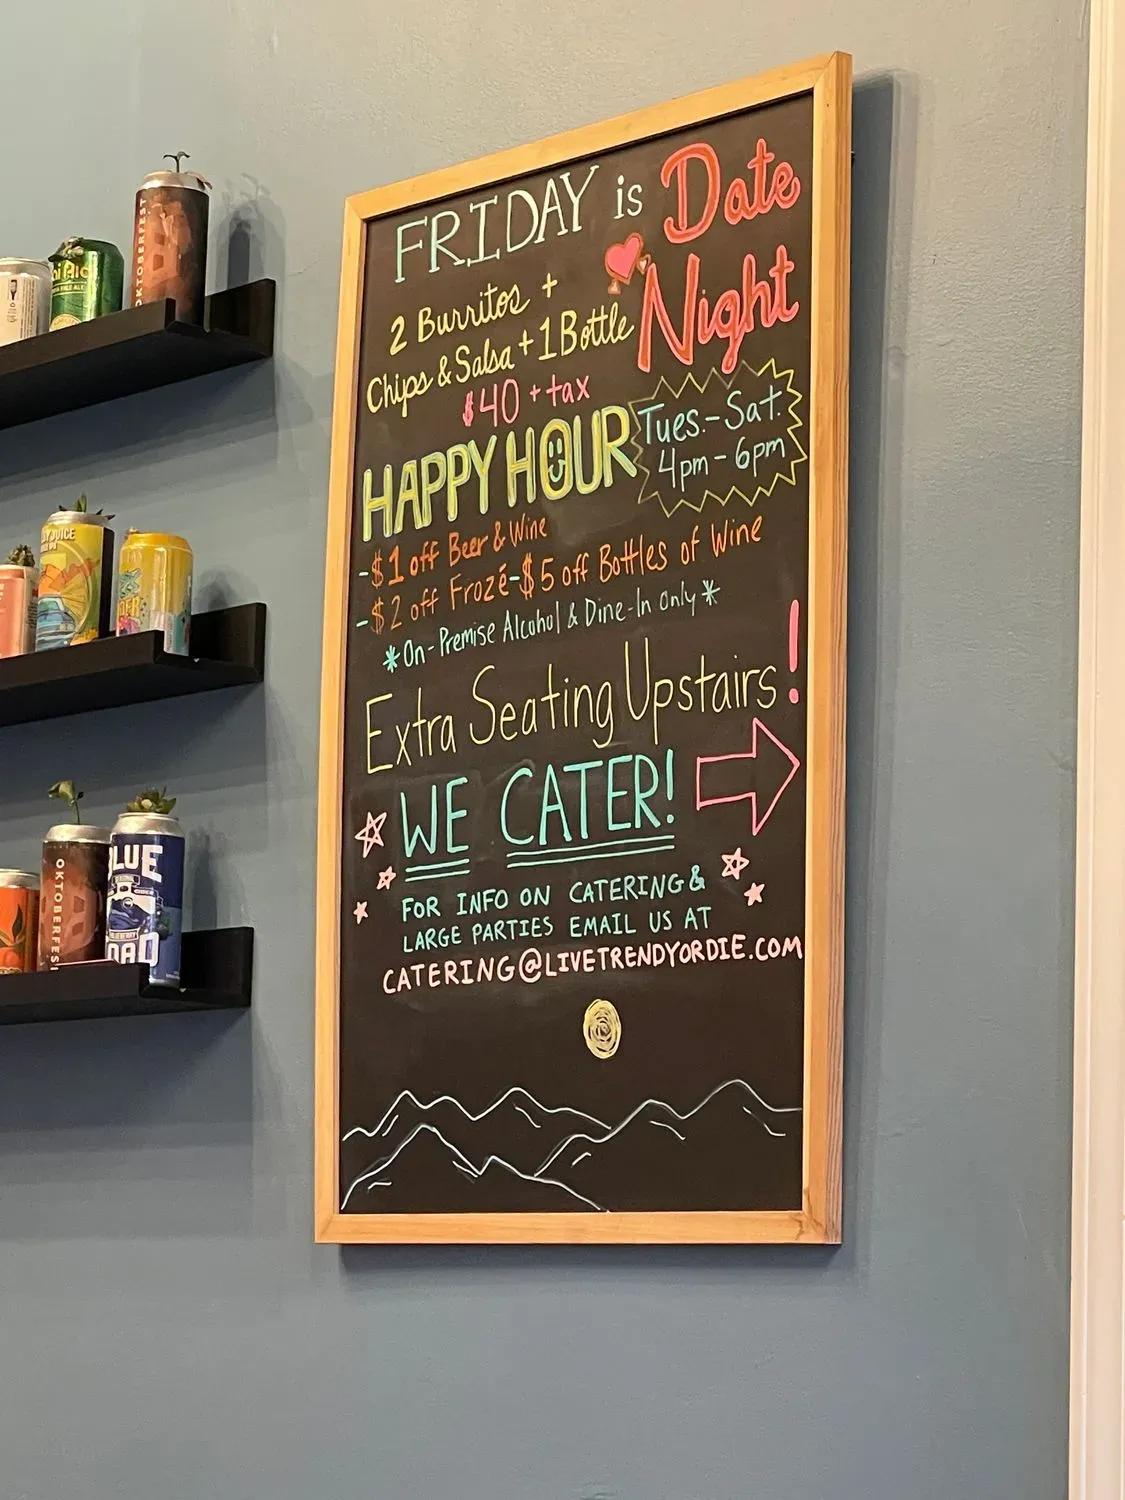 FRIDAY is Date Night
2 Burritos +
Chips & Salsa + 1 Bottle
$40 + tax
HAPPY HOUR
Tues.-Sat.
4pm-6pm
-$1 off Beer & Wine
-$2 off Frozé-$5 off Bottles of Wine
*On-Premise Alcohol & Dine-In only*
Extra Seating Upstairs!
WE CATER!
FOR INFO ON CATERING &
LARGE PARTIES EMAIL US AT
CATERING@LIVETRENDYORDIE.COM
OKTOBERFEST
PALE ALE
JUICE
OKTOBERFEST
BLUE